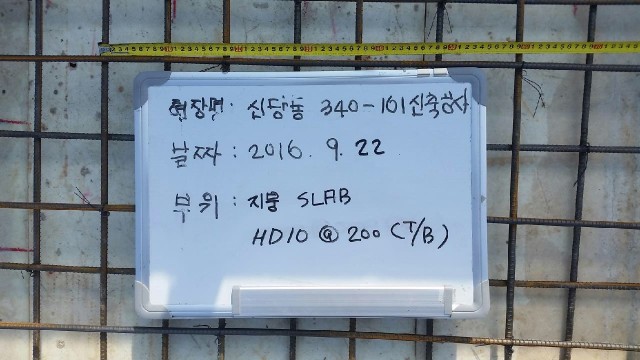 현장명: 신당동 340-101 신축공사
날짜: 2016. 9. 22
부위: 지붕 SLAB
HD10 @ 200 (T/B)